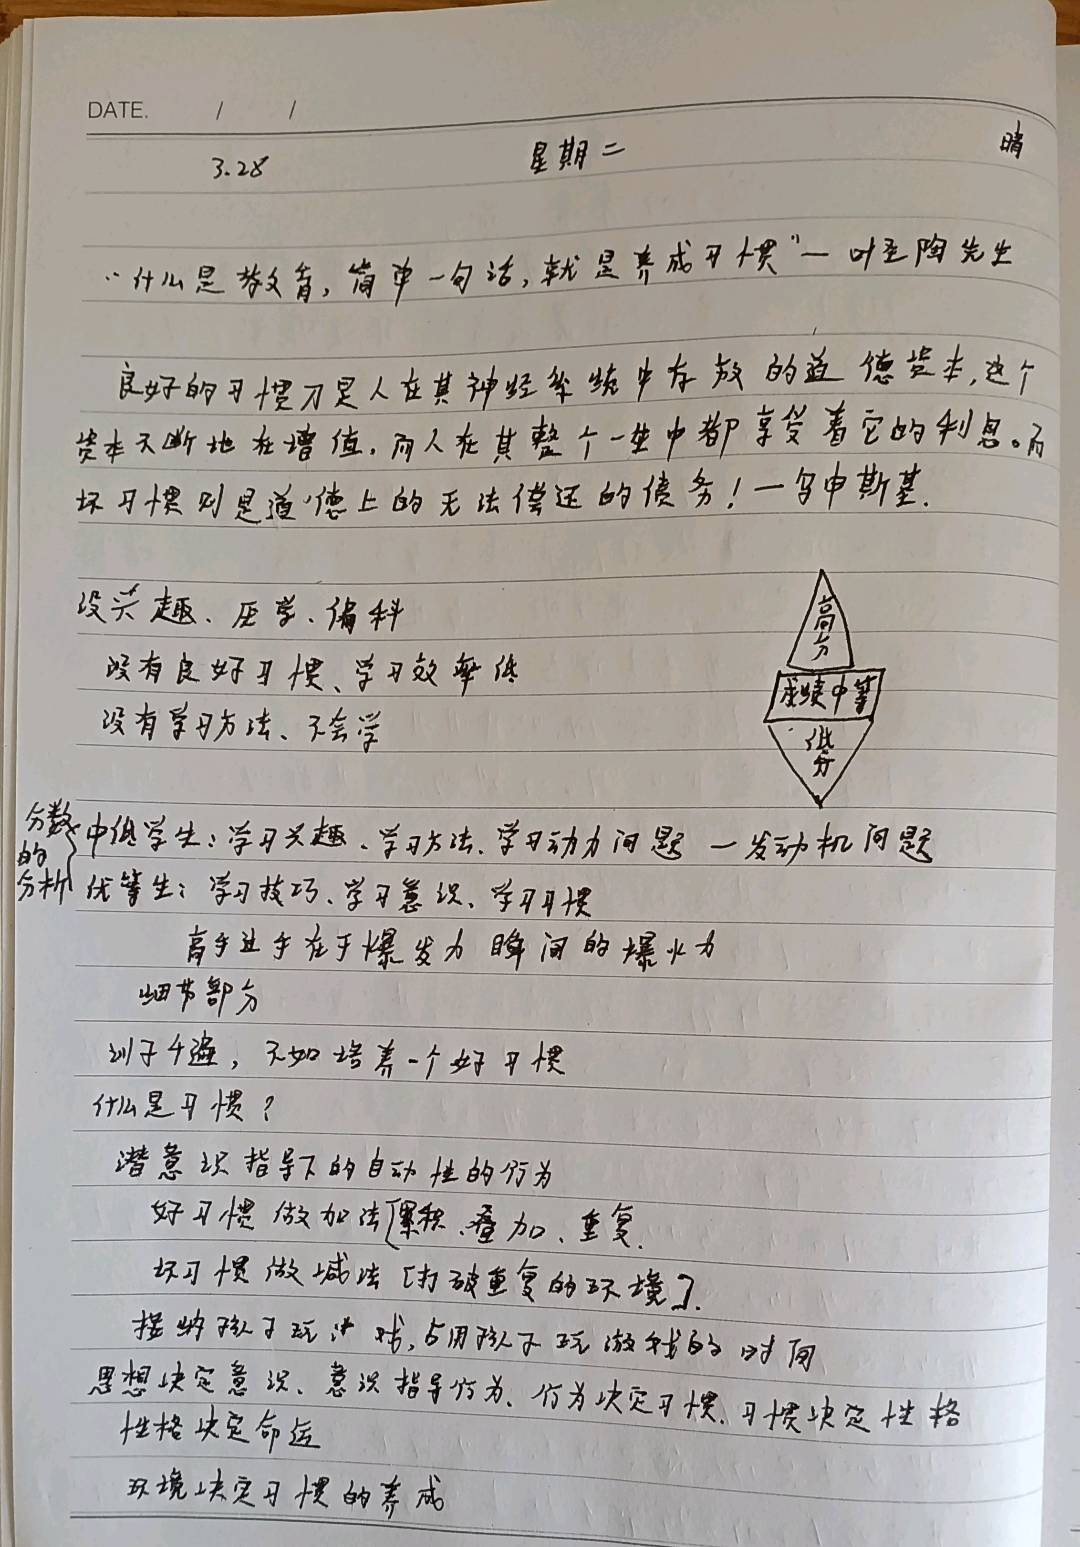 DATE. / /
3.28 星期二 晴
“什么是教育，简单一句话，就是养成习惯”—叶圣陶先生
良好的习惯乃是人在其神经系统中存放的道德资本，这个
资本不断地在增值，而人在其整个一生中都享受着它的利息。而
坏习惯则是道德上的无法偿还的债务！—乌申斯基.
没兴趣、厌学、偏科
没有良好习惯、学习效率低
没有学习方法、不会学
高分
成绩中等
低分
分数的分析
中低学生：学习兴趣、学习方法、学习动力问题 —发动机问题
优等生：学习技巧、学习意识、学习习惯
高手过手在于爆发力 瞬间的爆火力
细节部分
训子千遍，不如培养一个好习惯
什么是习惯？
潜意识指导下的自动性的行为
好习惯做加法[累积、叠加、重复.
坏习惯做减法[打破重复的环境].
接纳孩子玩游戏，占用孩子玩游戏的时间
思想决定意识、意识指导行为、行为决定习惯、习惯决定性格
性格决定命运
环境决定习惯的养成